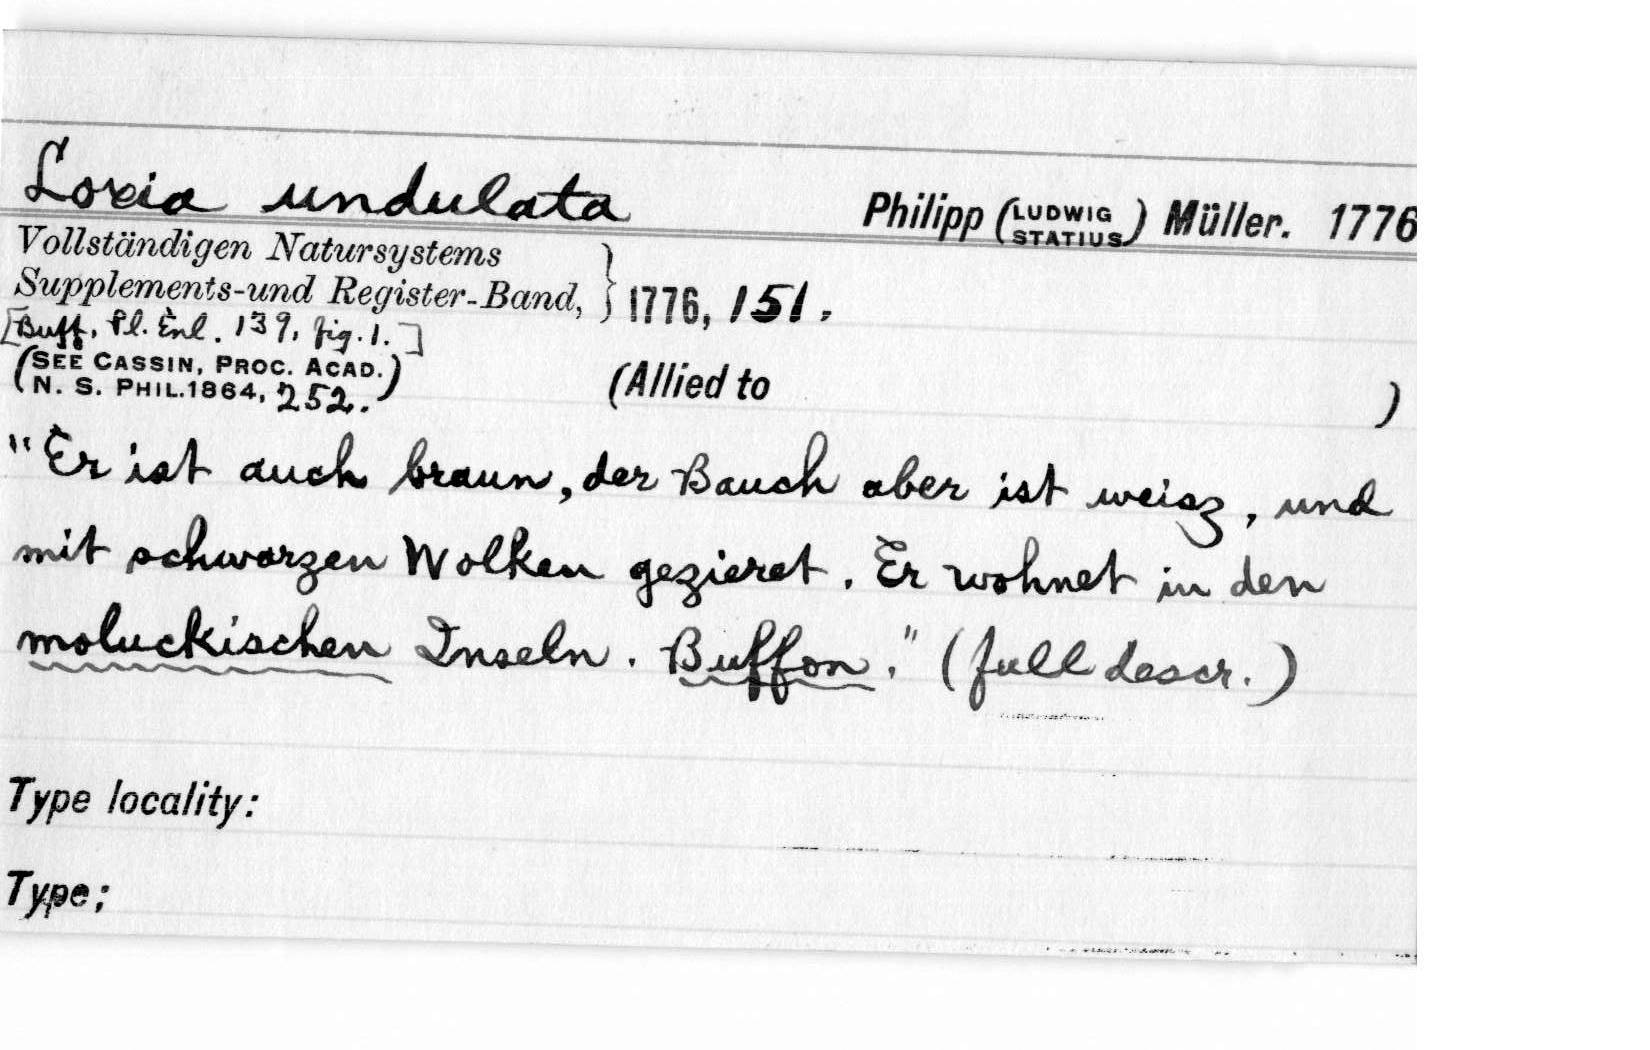 Loxia undulata Philipp (LUDWIG STATIUS) Müller. 1776
Vollständigen Natursystems
Supplements-und Register-Band, } 1776, 151.
[Buff. Pl. Enl. 139, fig. 1.]
(SEE CASSIN, PROC. ACAD.
N. S. PHIL. 1864, 252.) (Allied to )
"Er ist auch braun, der Bauch aber ist weisz, und
mit schwarzen Wolken gezieret. Er wohnet in den
moluckischen Inseln. Buffon." (full descr.)
Type locality:
Type: